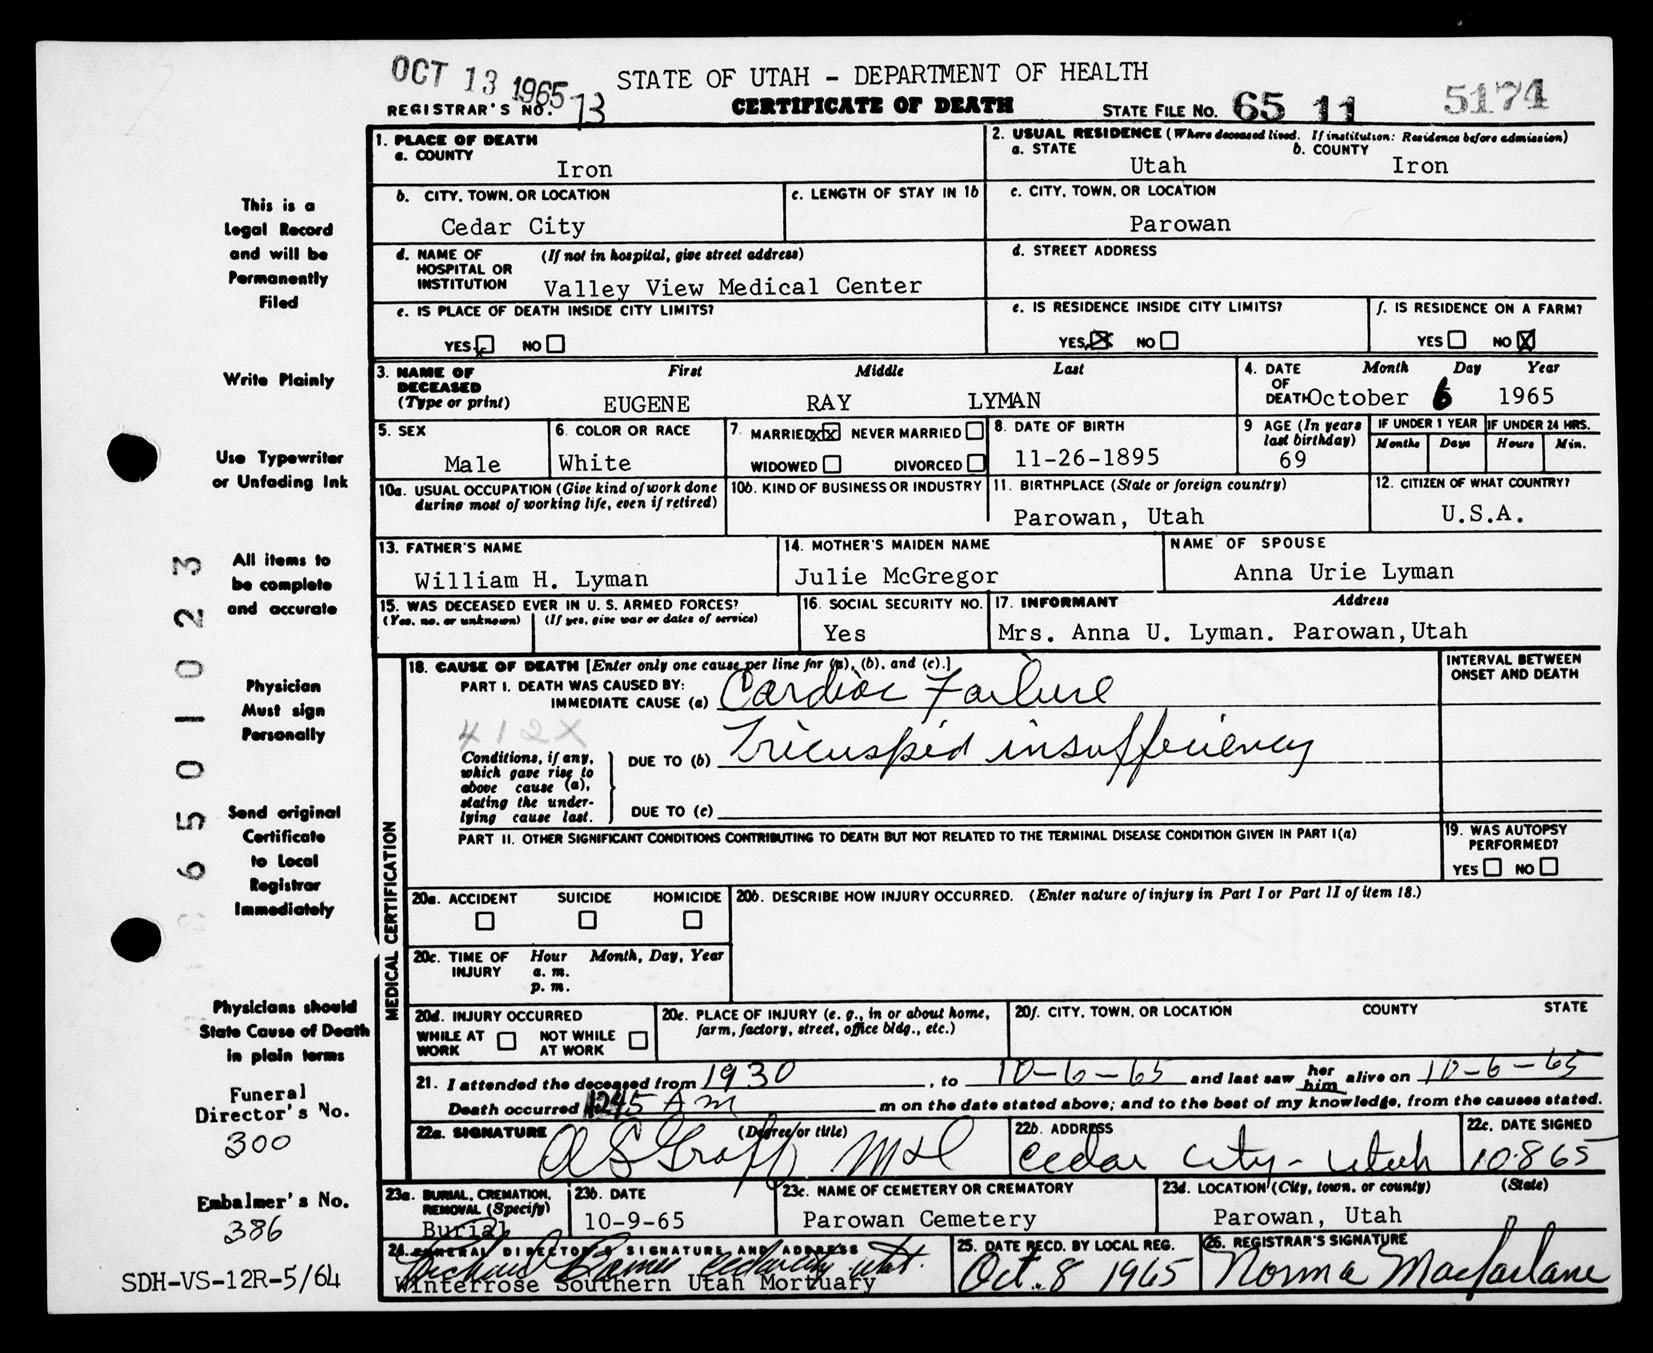 OCT 13 1965
STATE OF UTAH - DEPARTMENT OF HEALTH
REGISTRAR'S NO. 73
CERTIFICATE OF DEATH
STATE FILE NO. 65 11 5174
This is a
Legal Record
and will be
Permanently
Filed
Write Plainly
Use Typewriter
or Unfading Ink
All items to
be complete
and accurate
Physician
Must sign
Personally
Send original
Certificate
to Local
Registrar
Immediately
Physicians should
State Cause of Death
in plain terms
Funeral
Director's No.
300
Embalmer's No.
386
SDH-VS-12R-5/64
6501023
1. PLACE OF DEATH
a. COUNTY
Iron
2. USUAL RESIDENCE (Where deceased lived. If institution: Residence before admission)
a. STATE b. COUNTY
Utah Iron
b. CITY, TOWN, OR LOCATION
Cedar City
c. LENGTH OF STAY IN 1b
c. CITY, TOWN, OR LOCATION
Parowan
d. NAME OF (If not in hospital, give street address)
HOSPITAL OR
INSTITUTION Valley View Medical Center
d. STREET ADDRESS
e. IS PLACE OF DEATH INSIDE CITY LIMITS?
YES x NO
e. IS RESIDENCE INSIDE CITY LIMITS?
YES X NO
f. IS RESIDENCE ON A FARM?
YES NO X
3. NAME OF First Middle Last
DECEASED
(Type or print) EUGENE RAY LYMAN
4. DATE Month Day Year
OF
DEATH October 6 1965
5. SEX
Male
6. COLOR OR RACE
White
7. MARRIED xx NEVER MARRIED
WIDOWED DIVORCED
8. DATE OF BIRTH
11-26-1895
9 AGE (In years
last birthday)
69
IF UNDER 1 YEAR
Months Days
IF UNDER 24 HRS.
Hours Min.
10a. USUAL OCCUPATION (Give kind of work done
during most of working life, even if retired)
10b. KIND OF BUSINESS OR INDUSTRY
11. BIRTHPLACE (State or foreign country)
Parowan, Utah
12. CITIZEN OF WHAT COUNTRY?
U.S.A.
13. FATHER'S NAME
William H. Lyman
14. MOTHER'S MAIDEN NAME
Julie McGregor
NAME OF SPOUSE
Anna Urie Lyman
15. WAS DECEASED EVER IN U. S. ARMED FORCES?
(Yes, no, or unknown) (If yes, give war or dates of service)
16. SOCIAL SECURITY NO.
Yes
17. INFORMANT Address
Mrs. Anna U. Lyman. Parowan,Utah
MEDICAL CERTIFICATION
18. CAUSE OF DEATH [Enter only one cause per line for (a), (b), and (c).]
PART I. DEATH WAS CAUSED BY:
IMMEDIATE CAUSE (a) Cardiac Failure
412X
Conditions, if any,
which gave rise to
above cause (a),
stating the under-
lying cause last.
DUE TO (b) Tricuspid insufficiency
DUE TO (c)
INTERVAL BETWEEN
ONSET AND DEATH
PART II. OTHER SIGNIFICANT CONDITIONS CONTRIBUTING TO DEATH BUT NOT RELATED TO THE TERMINAL DISEASE CONDITION GIVEN IN PART I(a)
19. WAS AUTOPSY
PERFORMED?
YES NO
20a. ACCIDENT SUICIDE HOMICIDE
20b. DESCRIBE HOW INJURY OCCURRED. (Enter nature of injury in Part I or Part II of item 18.)
20c. TIME OF Hour Month, Day, Year
INJURY a. m.
p. m.
20d. INJURY OCCURRED
WHILE AT NOT WHILE
WORK AT WORK
20e. PLACE OF INJURY (e. g., in or about home,
farm, factory, street, office bldg., etc.)
20f. CITY, TOWN, OR LOCATION COUNTY STATE
21. I attended the deceased from 1930, to 10-6-65 and last saw her him alive on 10-6-65
Death occurred 1245 Am m on the date stated above; and to the best of my knowledge, from the causes stated.
22a. SIGNATURE (Degree or title)
A S Graff MD
22b. ADDRESS
Cedar City - Utah
22c. DATE SIGNED
10-8-65
23a. BURIAL, CREMATION,
REMOVAL (Specify)
Burial
23b. DATE
10-9-65
23c. NAME OF CEMETERY OR CREMATORY
Parowan Cemetery
23d. LOCATION (City, town, or county) (State)
Parowan, Utah
24. FUNERAL DIRECTOR'S SIGNATURE AND ADDRESS
Cedar City Utah.
Winterrose Southern Utah Mortuary
25. DATE RECD. BY LOCAL REG.
Oct. 8 1965
26. REGISTRAR'S SIGNATURE
Norma Macfarlane